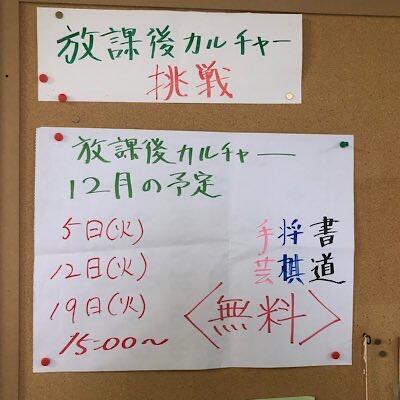 放課後カルチャー
挑戦
放課後カルチャー
12月の予定
5日(火)
12日(火)
19日(火)
15:00～
手芸
将棋
書道
〈無料〉